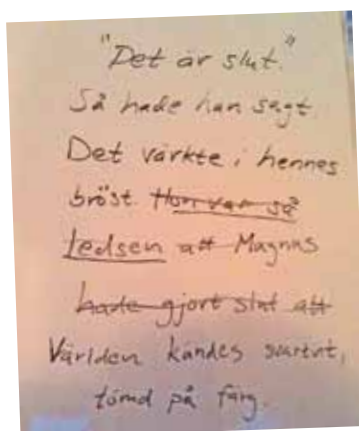 "Det är slut."
Så hade han sagt.
Det värkte i hennes
bröst. Hon var så
ledsen att Magnus
hade gjort slut att
Världen kändes svartvit,
tömd på färg.